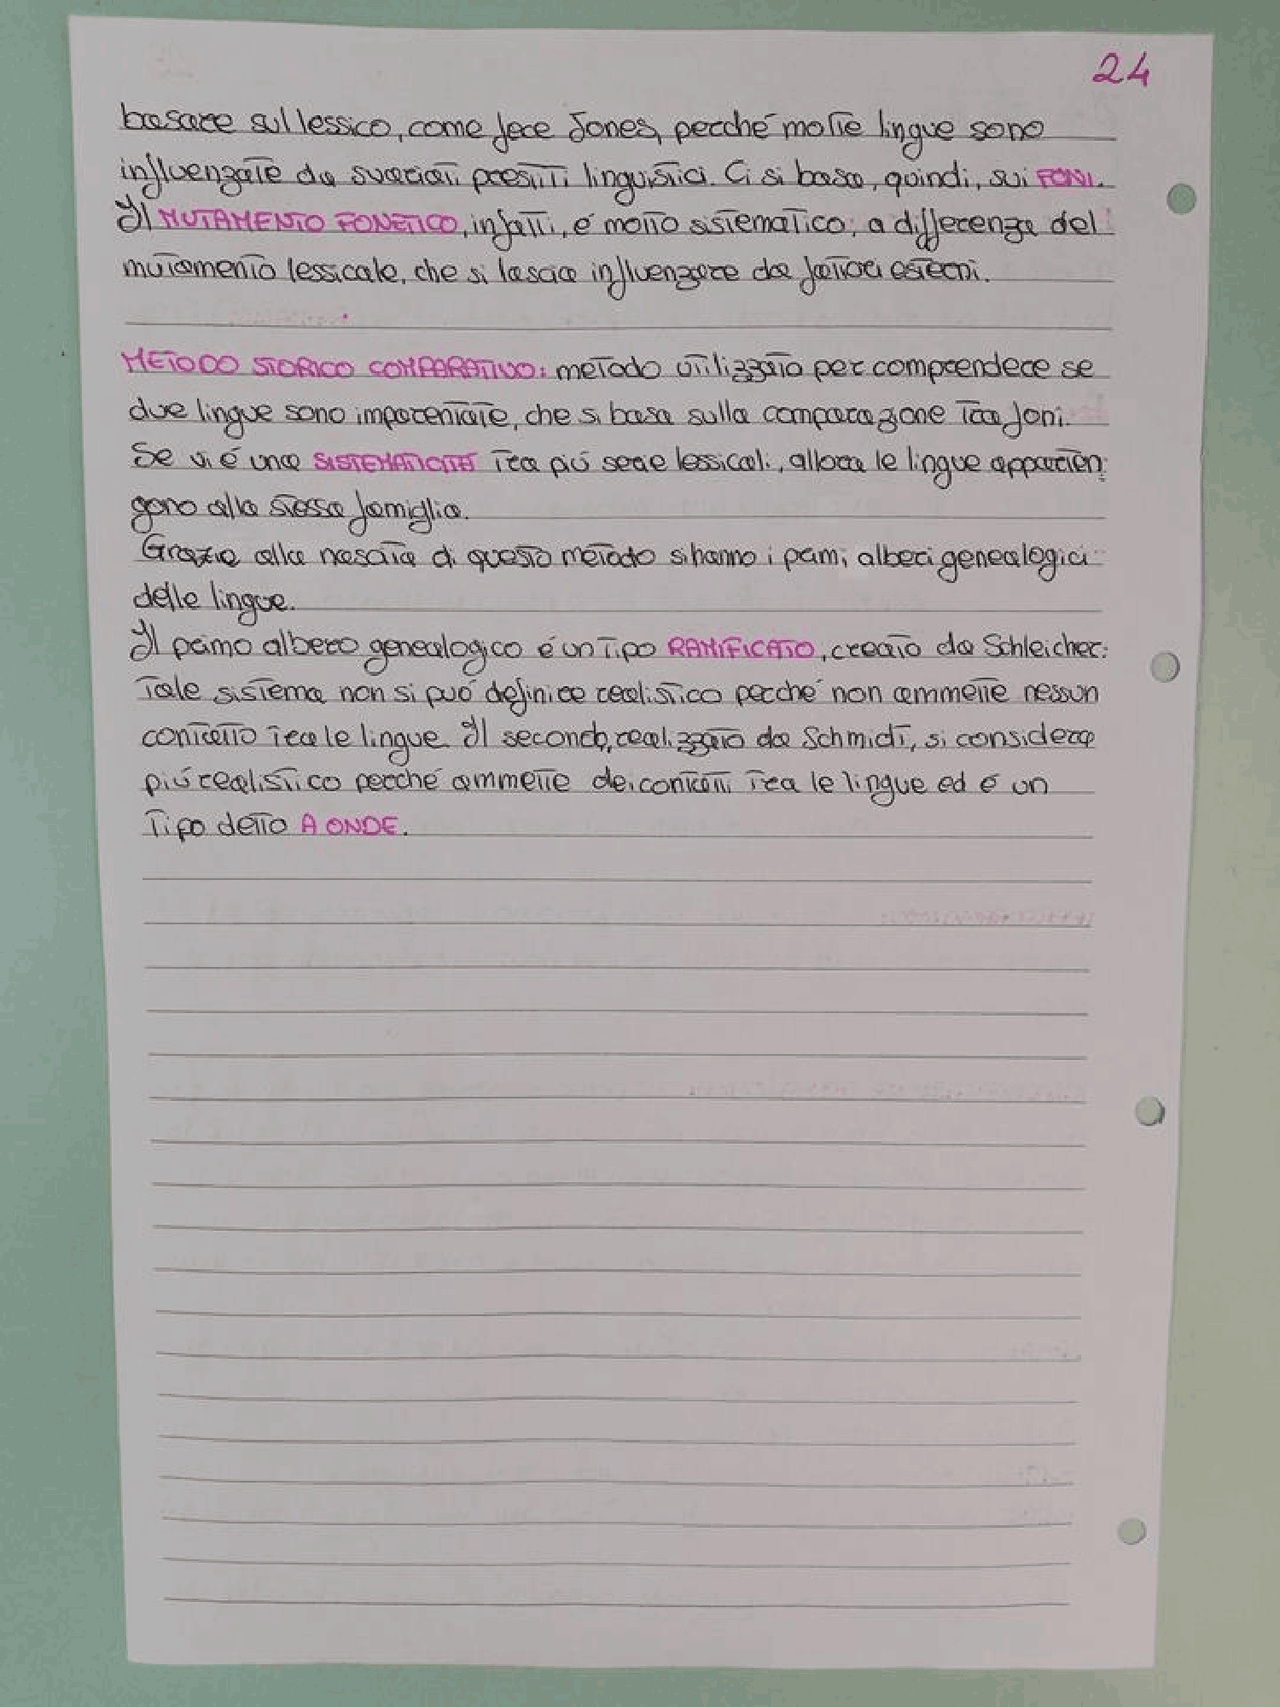 24
basare sul lessico, come fece Jones, perché molte lingue sono
influenzate da svariati prestiti linguistici. Ci si basa, quindi, sui FONI.
Il MUTAMENTO FONETICO, infatti, é molto sistematico, a differenza del
mutamento lessicale, che si lascia influenzare da fattori esterni.
METODO STORICO COMPARATIVO: metodo utilizzato per comprendere se
due lingue sono imparentate, che si basa sulla comparazione tra foni.
Se vi é una SISTEMATICITÁ tra piú serie lessicali, allora le lingue apparten-
gono alla stessa famiglia.
Grazie alla nascita di questo metodo si hanno i primi alberi genealogici
delle lingue.
Il primo albero genealogico é un tipo RAMIFICATO, creato da Schleicher.
Tale sistema non si puó definire realistico perché non ammette nessun
contatto tra le lingue. Il secondo, realizzato da Schmidt, si considera
piú realistico perché ammette dei contatti tra le lingue ed é un
tipo detto A ONDE.